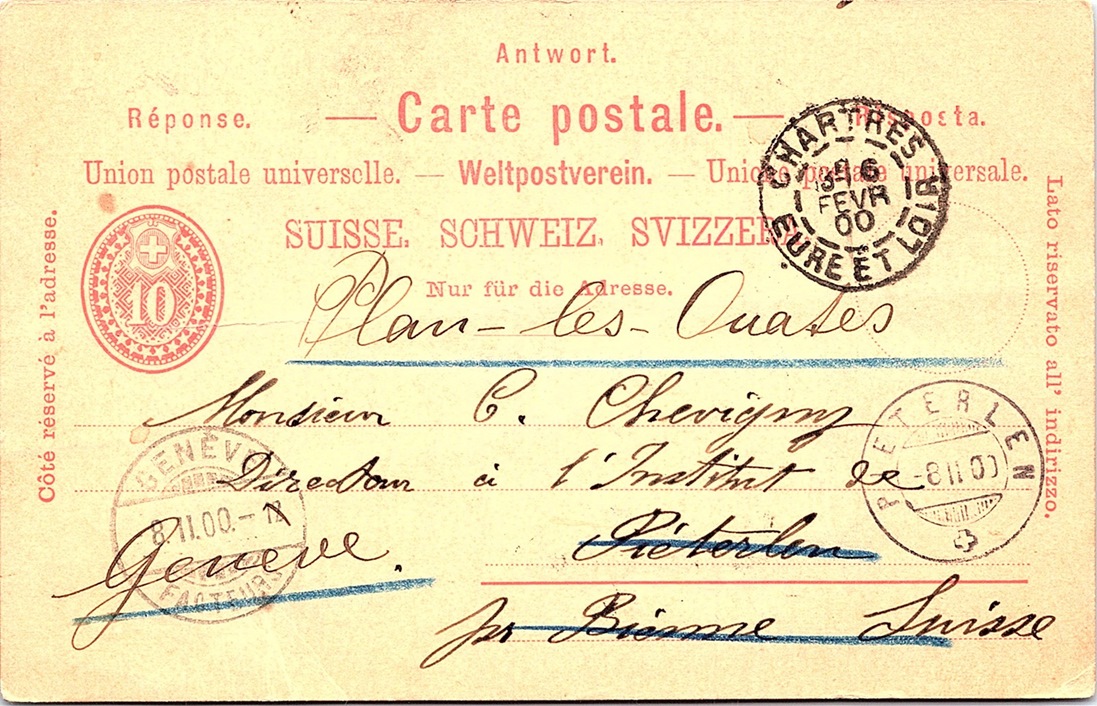 Antwort.
Réponse. — Carte postale. — Risposta.
Union postale universelle. — Weltpostverein. — Unione postale universale.
SUISSE. SCHWEIZ. SVIZZERA.
Nur für die Adresse.
10
Côté réservé à l'adresse.
Lato riservato all' indirizzo.
CHARTRES
6
FEVR
00
EURE ET LOIR
Plan-les-Ouates
Monsieur C. Chevigny
Directeur à l'Institut de
Piéterlen
Genève.
pr Bienne Suisse
PETERLEN
-8 II 00
GENÈVE
8.II.00.- 
FACTEURS